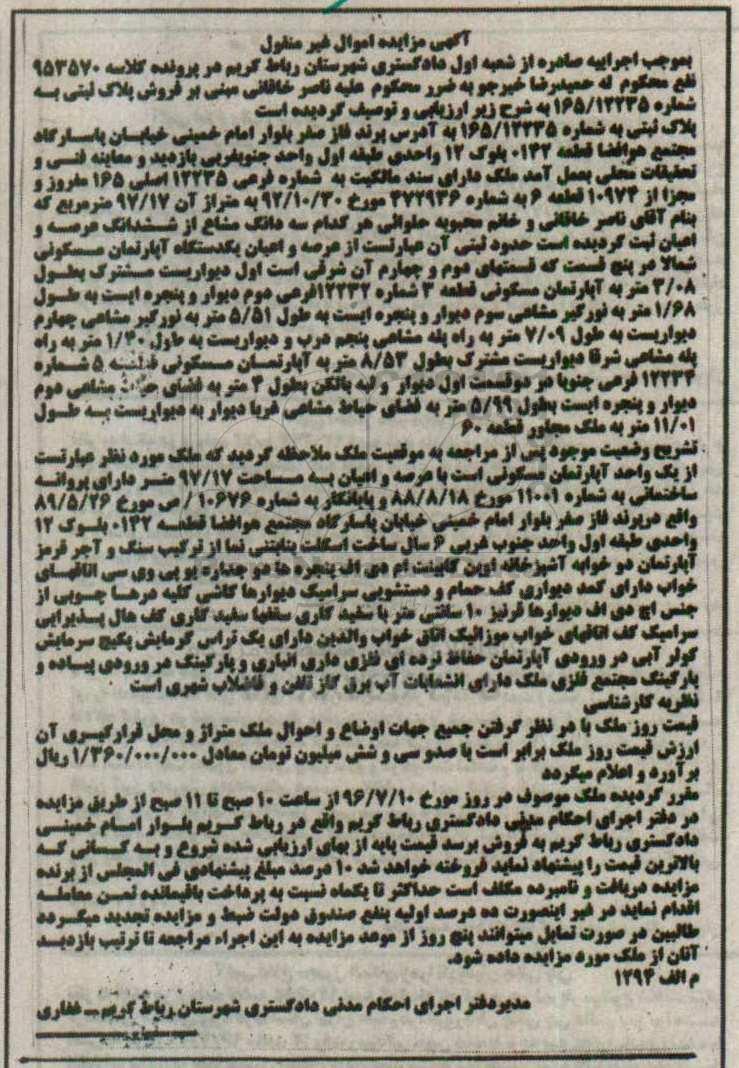 آگهی مزایده اموال غیر منقول
بموجب اجراییه صادره از شعبه اول دادگستری شهرستان رباط کریم در پرونده کلاسه ۹۵۳۵۷۰
نفع محکوم له حمیدرضا خبرجو به ضرر محکوم علیه ناصر خاقانی مبنی بر فروش پلاک ثبتی به
شماره ۱۶۵/۱۲۲۳۵ به شرح زیر ارزیابی و توصیف گردیده است
پلاک ثبتی به شماره ۱۶۵/۱۲۲۳۵ به آدرس پرند فاز صفر بلوار امام خمینی خیابان پاسارگاد
مجتمع هوافضا قطعه ۰۱۴۲ بلوک ۱۲ واحدی طبقه اول واحد جنوبغربی بازدید و معاینه فنی و
تحقیقات محلی بعمل آمد ملک دارای سند مالکیت به شماره فرعی ۱۲۲۳۵ اصلی ۱۶۵ مفروز و
مجزا از ۱۰۹۷۴ قطعه ۶ به شماره ۴۷۲۹۳۶ مورخ ۹۲/۱۰/۳۰ به متراژ آن ۹۷/۱۷ مترمربع که
بنام آقای ناصر خاقانی و خانم محبوبه حلوائی هر کدام سه دانگ مشاع از ششدانگ عرصه و
اعیان ثبت گردیده است حدود ثبتی آن عبارتست از عرصه و اعیان یکدستگاه آپارتمان مسکونی
شمالا در پنج قسمت که قسمتهای دوم و چهارم آن شرقی است اول دیواریست مشترک بطول
۳/۰۸ متر به آپارتمان مسکونی قطعه ۳ شماره ۱۲۲۳۲فرعی دوم دیوار و پنجره ایست به طول
۱/۶۸ متر به نورگیر مشاعی سوم دیوار و پنجره ایست به طول ۵/۵۱ متر به نورگیر مشاعی چهارم
دیواریست به طول ۷/۰۹ متر به راه پله مشاعی پنجم درب و دیواریست به طول ۱/۴۰ متر به راه
پله مشاعی شرقا دیواریست مشترک بطول ۸/۵۳ متر به آپارتمان مسکونی قطعه ۵ شماره
۱۲۲۳۴ فرعی جنوبا در دوقسمت اول دیوار و لبه بالکن بطول ۴ متر به فضای حیاط مشاعی دوم
دیوار و پنجره ایست بطول ۵/۹۹ متر به فضای حیاط مشاعی غربا دیوار به دیواریست به طول
۱۱/۰۱ متر به ملک مجاور قطعه ۶۰
تشریح وضعیت موجود پس از مراجعه به موقعیت ملک ملاحظه گردید که ملک مورد نظر عبارتست
از یک واحد آپارتمان مسکونی است با عرصه و اعیان به مساحت ۹۷/۱۷ متر دارای پروانه
ساختمانی به شماره ۱۱۰۰۱ مورخ ۸۸/۸/۱۸ و پایانکار به شماره ۱۰۶۷۶ / ص مورخ ۸۹/۵/۲۶
واقع درپرند فاز صفر بلوار امام خمینی خیابان پاسارگاد مجتمع هوافضا قطعه ۰۱۴۲ بلوک ۱۲
واحدی طبقه اول واحد جنوب غربی ۶ سال ساخت اسکلت بتابتنی نما از ترکیب سنگ و آجر قرمز
آپارتمان دو خوابه آشپزخانه اوپن کابینت ام دی اف پنجره ها دو جداره یو پی وی سی اتاقهای
خواب دارای کمد دیواری کف حمام و دستشویی سرامیک دیوارها کاشی کلیه درها چوبی از
جنس اچ دی اف دیوارها قرنیز ۱۰ سانتی متر با سفید کاری سقفها سفید کاری کف هال پذیرایی
سرامیک کف اتاقهای خواب موزائیک اتاق خواب والدین دارای یک تراس گرمایش پکیج سرمایش
کولر آبی در ورودی آپارتمان حفاظ نرده ای فلزی داری انباری و پارکینگ در ورودی پیاده و
پارکینگ مجتمع فلزی ملک دارای انشعابات آب برق گاز تلفن و فاضلاب شهری است
نظریه کارشناسی
قیمت روز ملک با در نظر گرفتن جمیع جهات اوضاع و احوال ملک متراژ و محل قرارگیری آن
ارزش قیمت روز ملک برابر است با صدو سی و شش میلیون تومان معادل ۱/۳۶۰/۰۰۰/۰۰۰ ریال
برآورد و اعلام میگردد
مقرر گردیده ملک موصوف در روز مورخ ۹۶/۷/۱۰ از ساعت ۱۰ صبح تا ۱۱ صبح از طریق مزایده
در دفتر اجرای احکام مدنی دادگستری رباط کریم واقع در رباط کریم بلوار امام خمینی
دادگستری رباط کریم به فروش برسد قیمت پایه از بهای ارزیابی شده شروع و به کسانی که
بالاترین قیمت را پیشنهاد نماید فروخته خواهد شد ۱۰ درصد مبلغ پیشنهادی فی المجلس از برنده
مزایده دریافت و نامبرده مکلف است حداکثر تا یکماه نسبت به پرداخت باقیمانده ثمن معامله
اقدام نماید در غیر اینصورت ده درصد اولیه بنفع صندوق دولت ضبط و مزایده تجدید میگردد
طالبین در صورت تمایل میتوانند پنج روز از موعد مزایده به این اجراء مراجعه تا ترتیب بازدید
آنان از ملک مورد مزایده داده شود.
م الف ۱۲۹۴
مدیردفتر اجرای احکام مدنی دادگستری شهرستان رباط کریم – غفاری